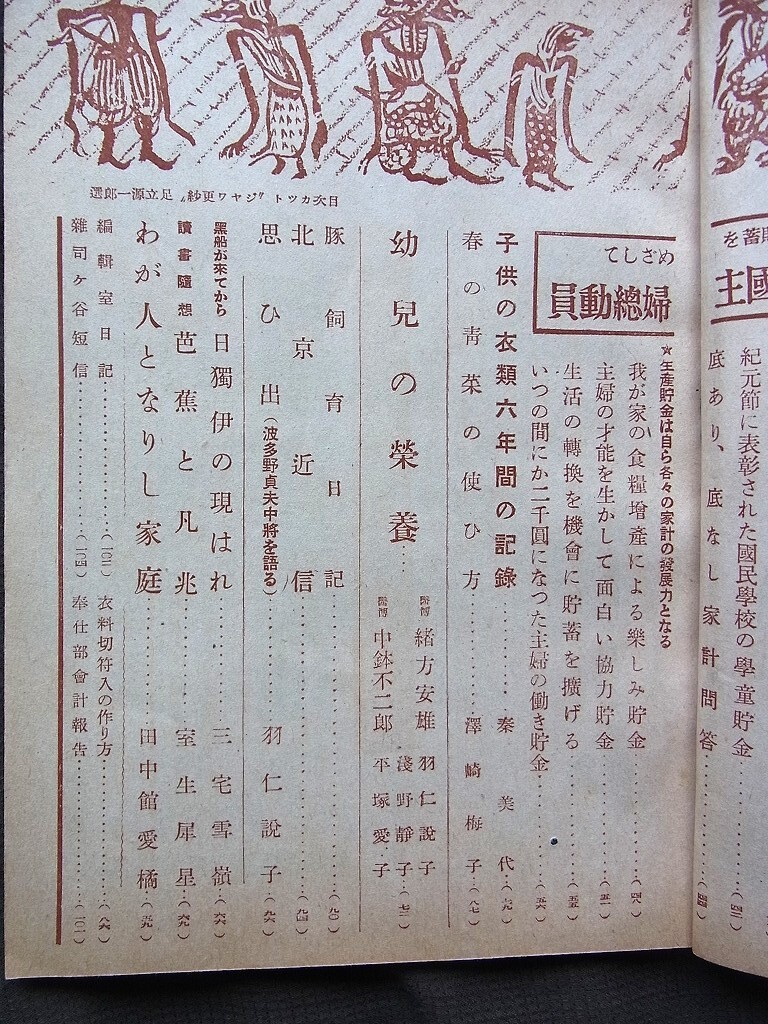 財蓄を
國主
紀元節に表彰された國民學校の學童貯金……(四二)
底あり、底なし家計問答……(四四)
目次カツト 〝ジヤワ更紗〟 足立源一郎選
めざして
婦總動員
★生産貯金は自ら各々の家計の發展力となる
我が家の食糧增產による樂しみ貯金……(四八)
主婦の才能を生かして面白い協力貯金……(五一)
生活の轉換を機會に貯蓄を擴げる……(五五)
いつの間にか二千圓になつた主婦の働き貯金……(五六)
子供の衣類六年間の記錄……秦美代…(一九)
春の靑菜の使ひ方……澤崎梅子…(八七)
幼兒の榮養……醫博 緒方安雄 醫博 中鉢不二郎 羽仁說子 淺野靜子 平塚愛子…(七二)
豚飼育日記……(九〇)
北京近信……(九四)
思ひ出(波多野貞夫中將を語る)……羽仁說子…(九六)
黑船が來てから 日獨伊の現はれ……三宅雪嶺…(六六)
讀書隨想 芭蕉と凡兆……室生犀星…(六九)
わが人となりし家庭……田中館愛橘…(五九)
編輯室日記……(一〇二) 衣料切符入の作り方……(八六)
雜司ヶ谷短信……(一〇四) 奉仕部會計報告……(一〇一)